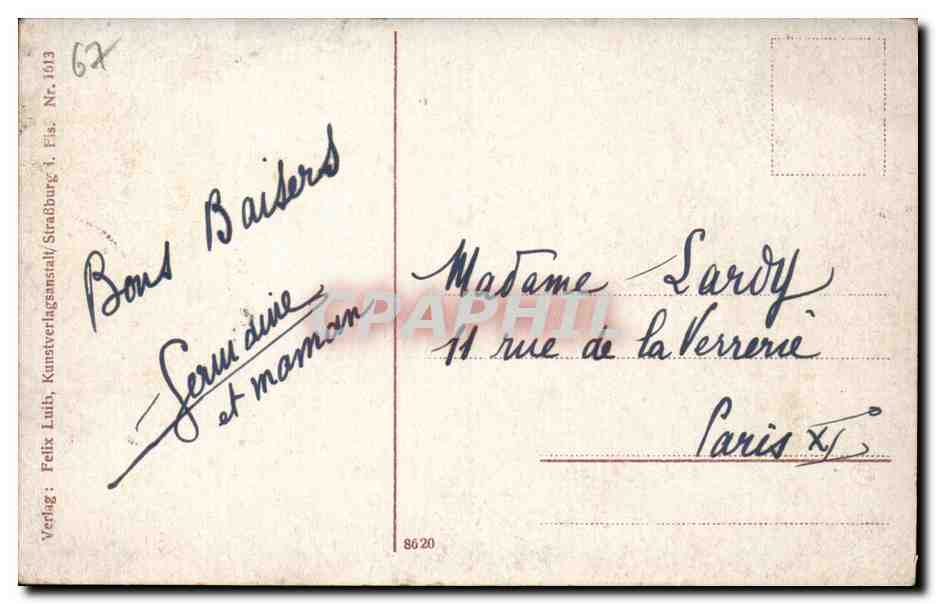 67
Verlag: Felix Luib, Kunstverlagsanstalt/Straßburg i. Els. Nr. 1613
Bons Baisers
Germaine
et maman
Madame Lardy
11 rue de la Verrerie
Paris XI°
8620
CPAPHIL